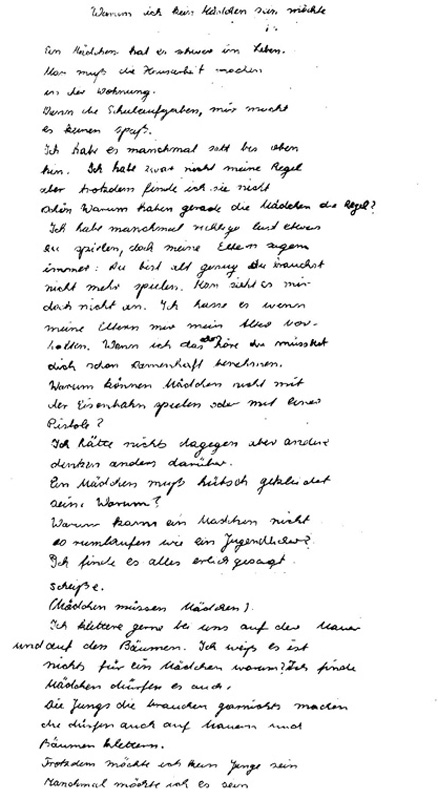 Warum ich kein Mädchen sein möchte
Ein Mädchen hat es schwer im Leben.
Man muß die Hausarbeit machen
in der Wohnung.
Dann die Schulaufgaben, mir macht
es keinen Spaß.
Ich habe es manchmal satt bis oben
hin. Ich habe zwar nicht meine Regel
aber trotzdem finde ich sie nicht
schön Warum haben gerade die Mädchen die Regel?
Ich habe manchmal richtige lust etwas
zu spielen, doch meine Eltern sagen
immer: Du bist alt genug Du brauchst
nicht mehr spielen. Man sieht es mir
doch nicht an. Ich hasse es wenn
meine Eltern mir mein Alter vor-
halten. Wenn ich das höre du müsstest
dich schon damenhaft benehmen.
Warum können Mädchen nicht mit
der Eisenbahn spielen oder mit einer
Pistole?
Ich hätte nichts dagegen aber andere
denken anders darüber.
Ein Mädchen muß hübsch gekleidet
sein. Warum?
Warum kann ein Mädchen nicht
so rumlaufen wie ein Jugendlicher?
Ich finde es alles erlich gesagt
scheiße.
(Mädchen müssen Mädchen).
Ich klettere gerne bei uns auf der Mauer
und auf den Bäumen. Ich weiß es ist
nichts für ein Mädchen warum? Ich finde
Mädchen dürfen es auch.
Die Jungs die brauchen garnichts machen
die dürfen auch auf Mauern und
Bäumen klettern.
Trotzdem möchte ich kein Junge sein
Manchmal möchte ich es sein